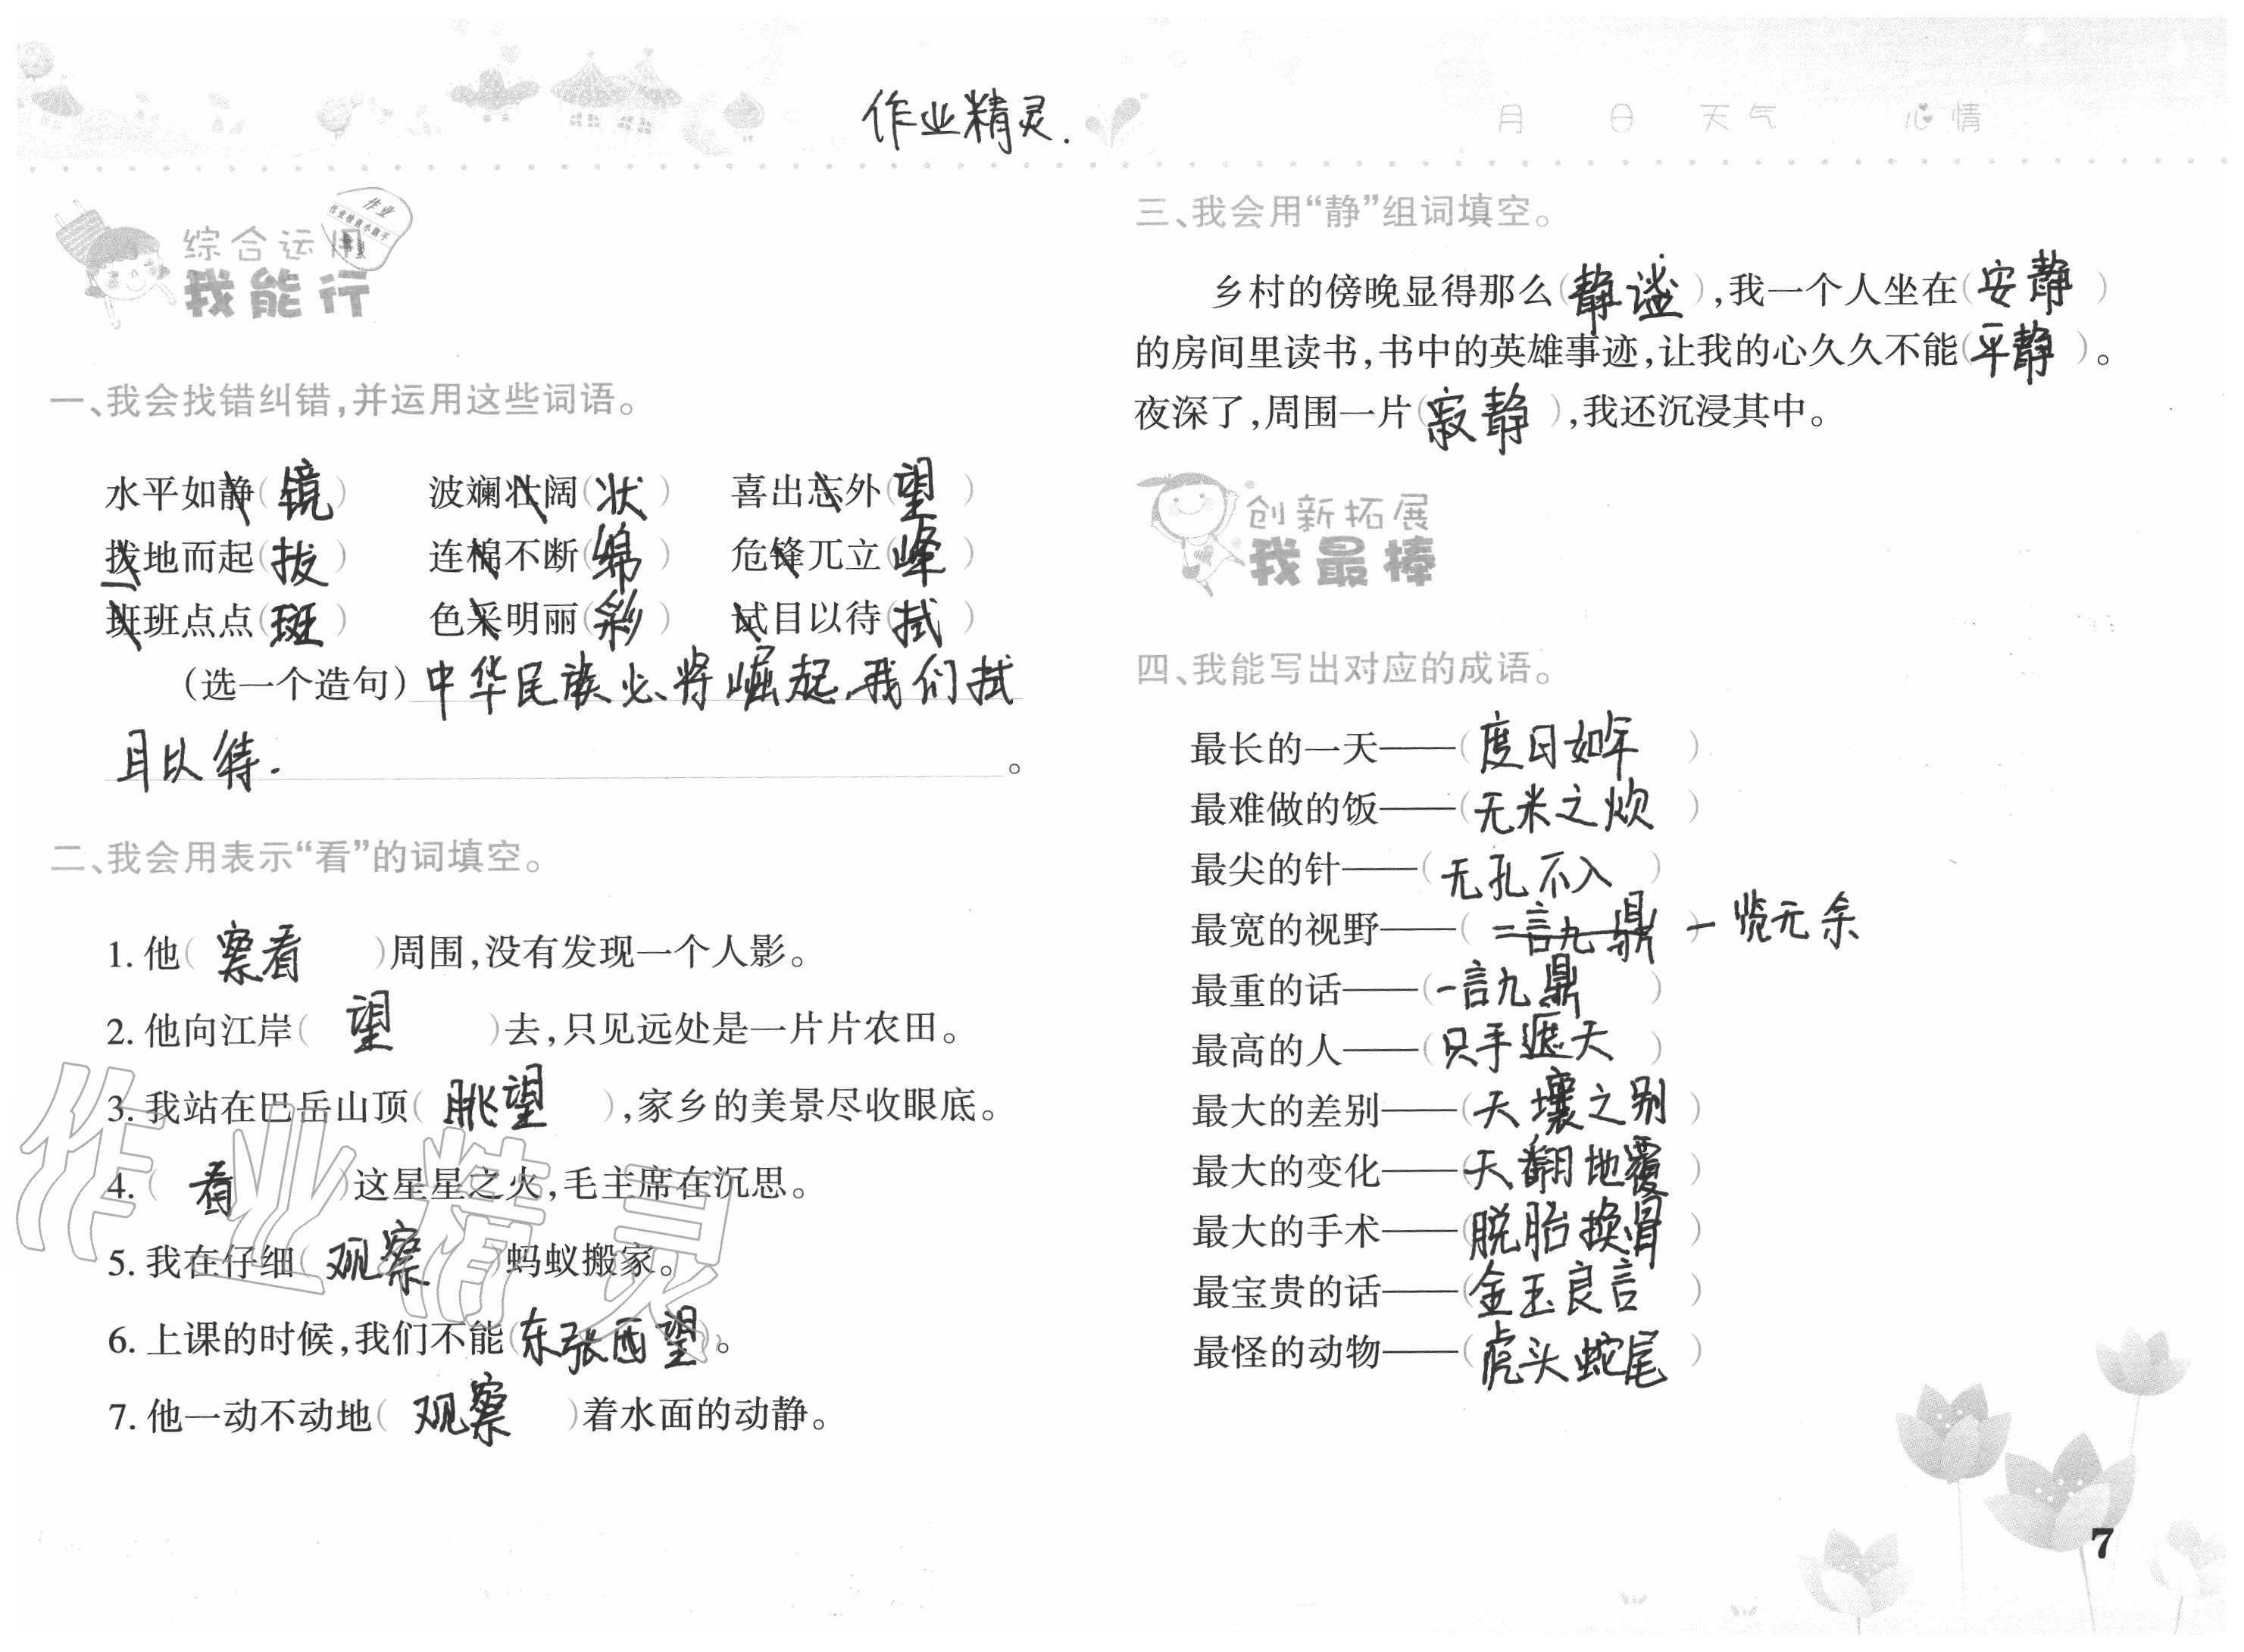 作业精灵.
月 日 天气 心情
作业
作业检查小助手
精灵
综合运用
我能行
一、我会找错纠错,并运用这些词语。
水平如静(镜) 波斓壮阔(状) 喜出忘外(望)
拨地而起(拔) 连棉不断(绵) 危锋兀立(峰)
班班点点(斑) 色采明丽(彩) 试目以待(拭)
(选一个造句)中华民族必将崛起,我们拭
目以待.。
二、我会用表示“看”的词填空。
1. 他(察看)周围,没有发现一个人影。
2. 他向江岸(望)去,只见远处是一片片农田。
3. 我站在巴岳山顶(眺望),家乡的美景尽收眼底。
4. (看)这星星之火,毛主席在沉思。
5. 我在仔细(观察)蚂蚁搬家。
6. 上课的时候,我们不能(东张西望)。
7. 他一动不动地(观察)着水面的动静。
作业精灵
三、我会用“静”组词填空。
乡村的傍晚显得那么(静谧),我一个人坐在(安静)
的房间里读书,书中的英雄事迹,让我的心久久不能(平静)。
夜深了,周围一片(寂静),我还沉浸其中。
创新拓展
我最棒
四、我能写出对应的成语。
最长的一天——(度日如年)
最难做的饭——(无米之炊)
最尖的针——(无孔不入)
最宽的视野——(一言九鼎)一览无余
最重的话——(一言九鼎)
最高的人——(只手遮天)
最大的差别——(天壤之别)
最大的变化——(天翻地覆)
最大的手术——(脱胎换骨)
最宝贵的话——(金玉良言)
最怪的动物——(虎头蛇尾)
7